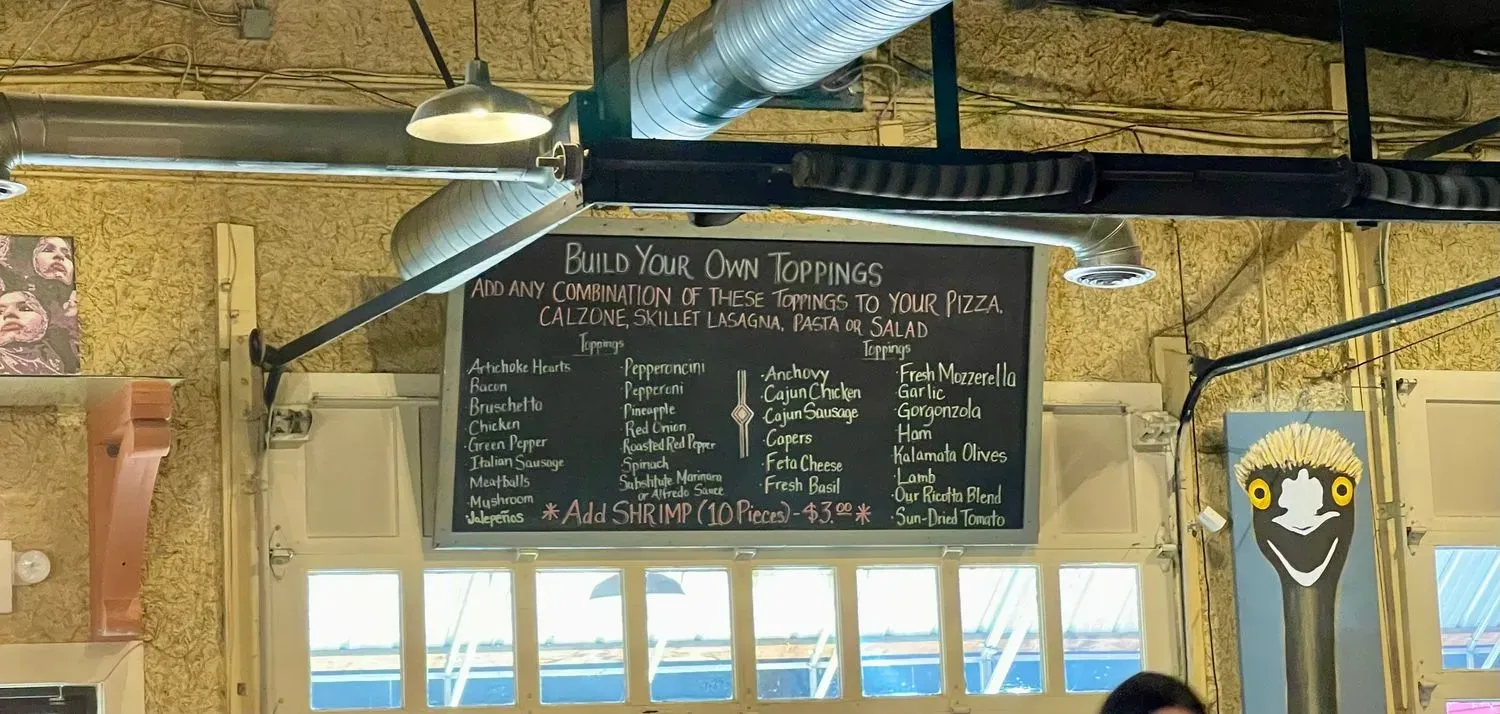 BUILD YOUR OWN TOPPINGS
ADD ANY COMBINATION OF THESE TOPPINGS TO YOUR PIZZA,
CALZONE, SKILLET LASAGNA, PASTA OR SALAD
Toppings
Artichoke Hearts
Bacon
Bruschetta
Chicken
Green Pepper
Italian Sausage
Meatballs
Mushroom
Jalepeños
Pepperoncini
Pepperoni
Pineapple
Red Onion
Roasted Red Pepper
Spinach
Substitute Marinara
or Alfredo Sauce
Toppings
Anchovy
Cajun Chicken
Cajun Sausage
Capers
Feta Cheese
Fresh Basil
Fresh Mozzerella
Garlic
Gorgonzola
Ham
Kalamata Olives
Lamb
Our Ricotta Blend
Sun-Dried Tomato
*Add SHRIMP (10 Pieces) - $3.00*